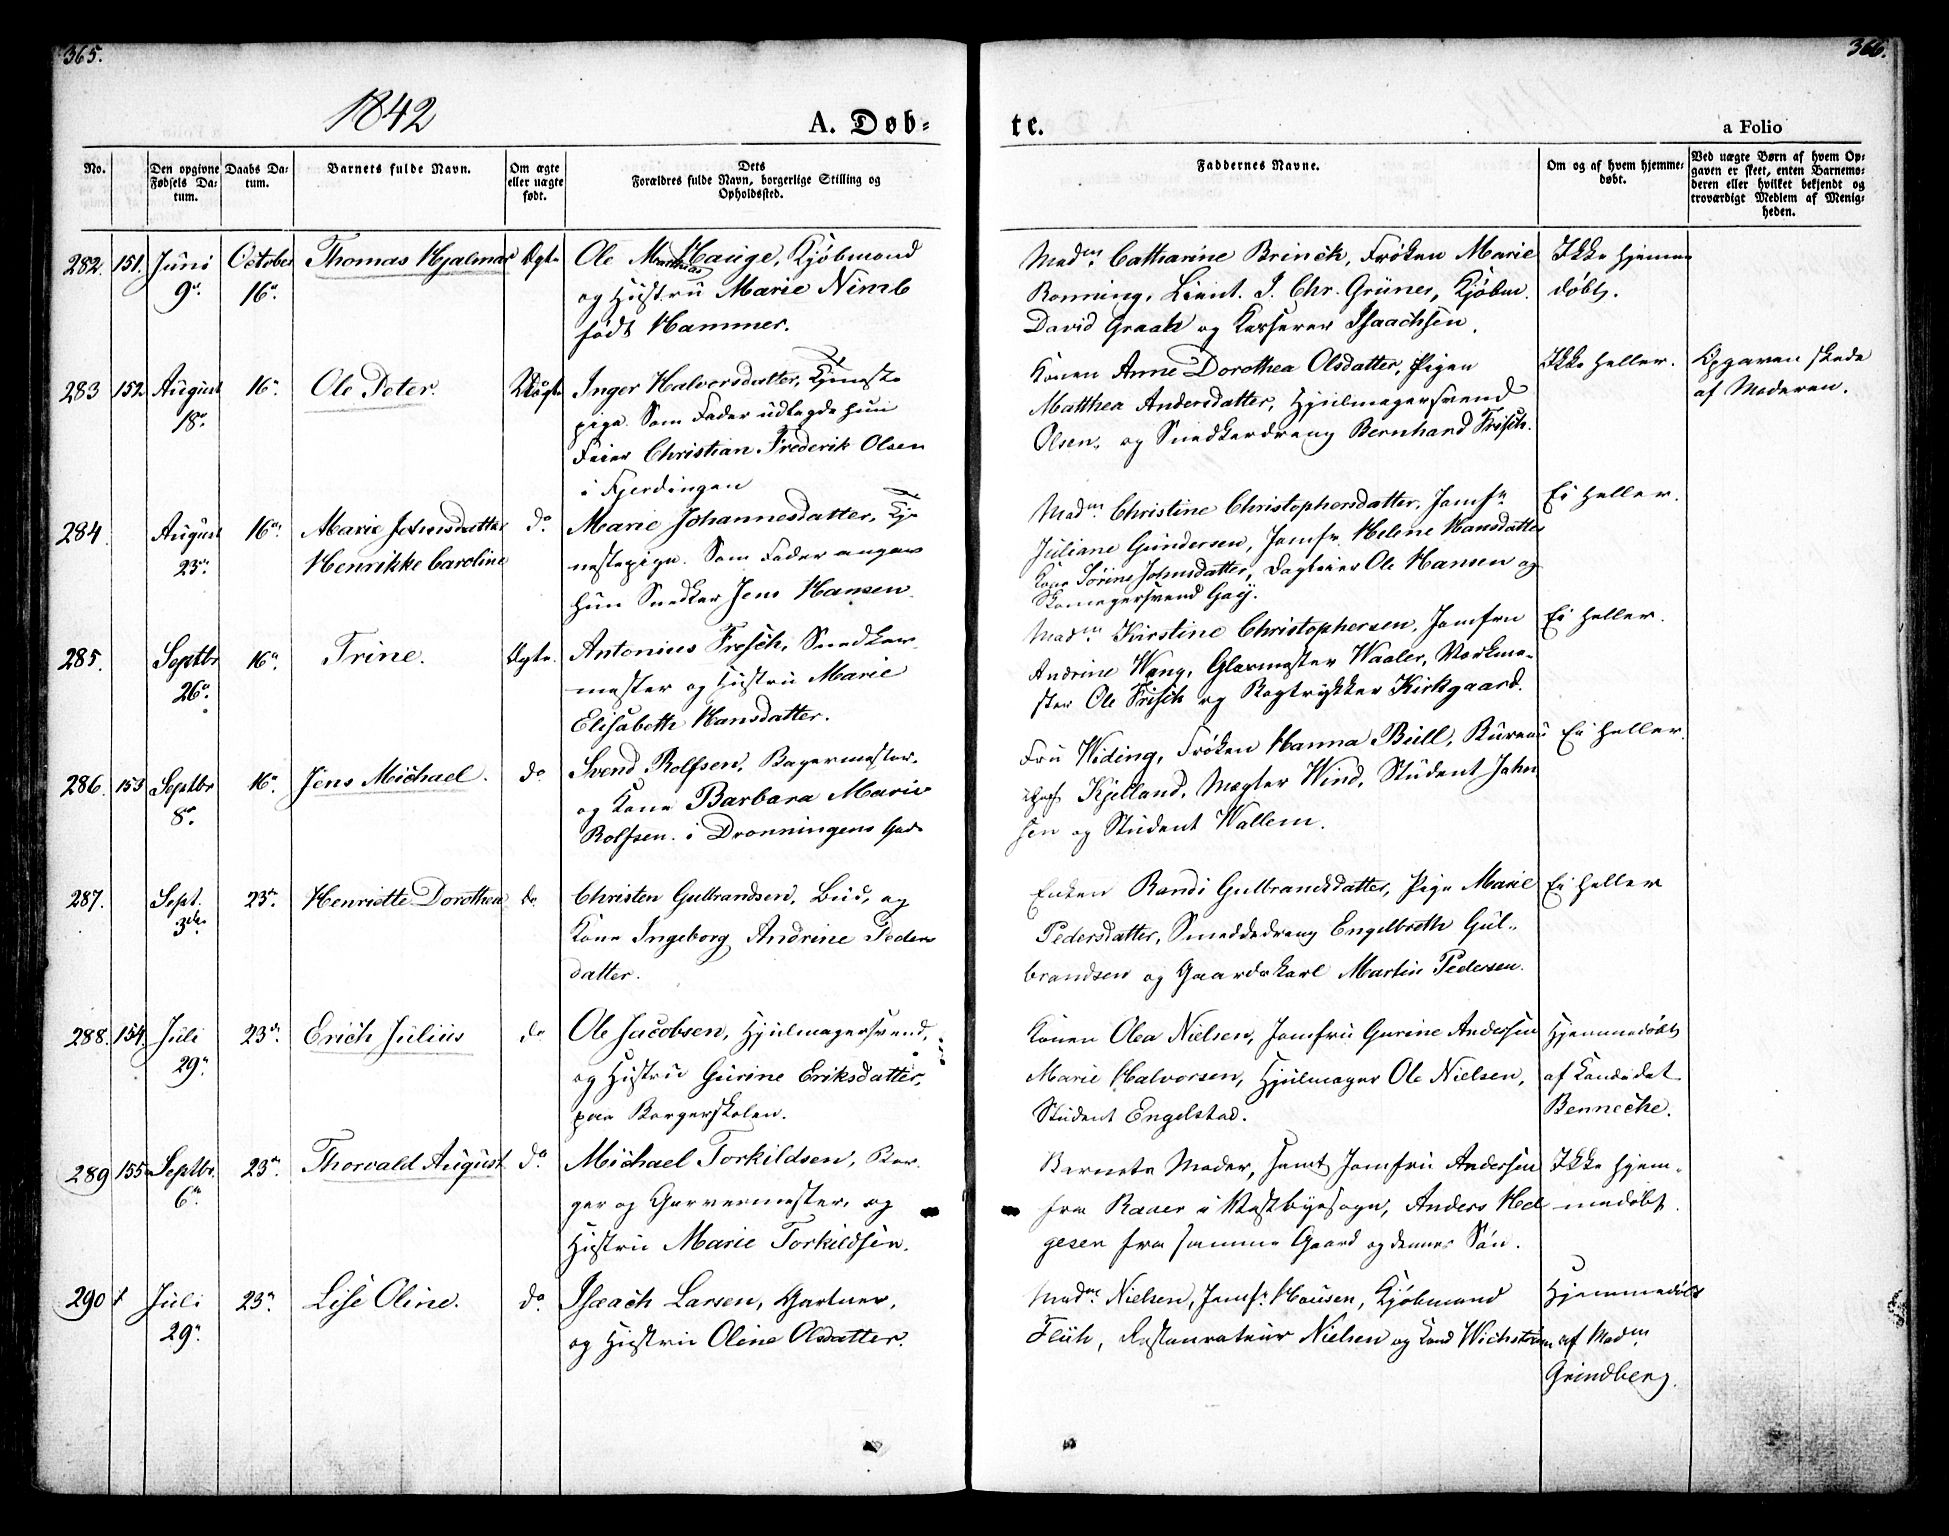 365.
366.
1842
A. Døb-
te.
a Folio
No.
Den opgivne Fødsels Datum.
Daabs Datum.
Barnets fulde Navn.
Om ægte eller uægte født.
Dets Forældres fulde Navn, borgerlige Stilling og Opholdssted.
Faddernes Navne.
Om og af hvem hjemmedøbt.
Ved uægte Børn af hvem Opgaven er skeet, enten Barnemoderen eller hvilket bekjendt og troværdigt Medlem af Menigheden.
282. 151. Juni 9de October 16de Thomas Hjalmar Ægte
Ole Mathias Hauge, Kjøbmand
og Hustru Marie Nimb
født Hammer.
Madm. Catharine Brinck, Frøken Marie
Ronning, Lieut. J. Chr. Grüner, Kjøbm.
David Graah og Kasserer Isaachsen.
Ikke hjemmedøbt.
283 152 August 18de 16de Ole Peter. Uægte
Inger Halvorsdatter, Tjeneste
pige. Som Fader udlagde hun
Feier Christian Frederik Olsen
i Fjerdingen
Konen Anne Dorothea Olsdatter, Pigen
Matthea Andersdatter, Hjulmagersvend
Olsen, og Snedkerdreng Bernhard Frisch.
Ikke heller.
Opgaven skede
af Moderen.
284 August 23de 16de
Henrikke Caroline do
Marie Johannesdatter, Tje
nestepige. Som Fader angav
hun Snedker Jens Hansen.
Madm. Christine Christophersdatter, Jomfr.
Juliane Gundersen, Jomfr. Helene Hansdatter
Kone Sørine Johnsdatter, Dagleier Ole Hansen og
Skomagersvend Gay.
Ei heller.
285. Septbr 26de 16de Trine. Ægte.
Antonius Fresch, Snedker
mester og Hustru Marie
Elisabeth Hansdatter.
Madm. Kirstine Christophersen, Jomfru
Andrine Wang, Glasmester Waaler, Værkme-
ster Ole Frisch og Bogtrykker Kirkgaard.
Ei heller.
286. 153 Septbr 8de 16de Jens Michael. do
Svend Rolfsen, Bagermester,
og Kone Barbara Marie
Rolfsen. i Dronningens Gade
Fru Widing, Frøken Hanna Bull, Bureau
chef Kjelland, Mægler Wind, Student Jahn
sen og Student Wallem.
Ei heller.
287. Sept. 3die 23de Henriette Dorothea do
Christen Gulbrandsen, Bud, og
Kone Ingeborg Andrine Peders
datter.
Enken Randi Gulbrandsdatter, Pige Marie
Pedersdatter, Smeddedreng Engelbreth Gul-
brandsen og Gaardskarl Martin Pedersen.
Ei heller
288. 154. Juli 29de 23de Erich Julius do
Ole Jacobsen, Hjulmagersvend,
og Hustru Gurine Eriksdatter,
paa Borgerskolen.
Konen Olea Nielsen, Jomfru Gurine Andersen
Marie Halvorsen, Hjulmager Ole Nielsen,
Student Engelstad.
Hjemmedøbt
af Kandidat
Benneche.
289 155 Septbr. 6te 23de Thorvald August do
Michael Torkildsen, Bor
ger og Garvermester, og
Hustru Marie Torkildsen.
Barnets Moder, samt Jomfru Andersen
fra Raaer i Vestbysogn, Anders Hel
gesen fra samme Gaard og dennes Søn.
Ikke hjem-
medøbt.
290 Juli 29de 23de Lise Oline. do
Isaach Larsen, Gartner,
og Hustru Oline Olsdatter.
Madm. Nielsen, Jomfr. Hansen, Kjøbmand
Flüh, Restaurateur Nielsen og Cand Wichstrøm
Hjemmedøbt
af Madm.
Grindberg.